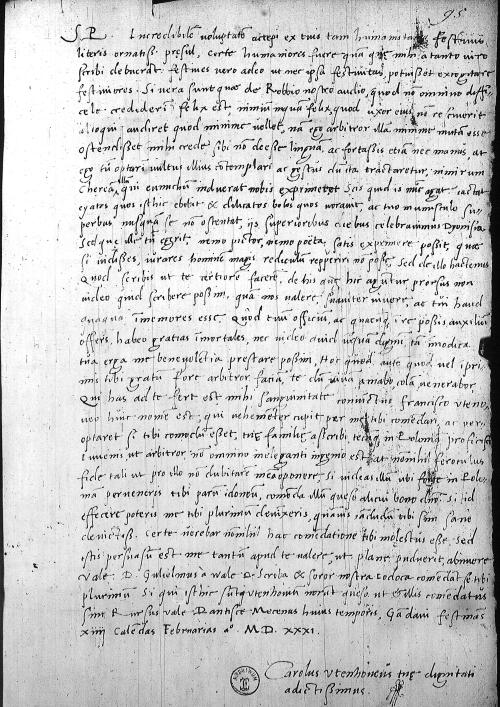 95
S. P. Incredibilem voluptatem accepi ex tuis tam humanis tam festivis
literis ornatiss. presul, certe humaniores fuere quam quae mihi a tanto viro
scribi debuerant. festivae vero adeo ut nec ipsa festivitas potuisset excogitare
festiviores. Si vera sunt quae de Robbio nostro audio, quod non omnino diffi
cile crediderim felix est, nimium nquam felix, quod uxor eius non resciverit
alioqui audiret quod minime vellet, nam ego arbitror illam minime mutam esse
ostendisset mihi crede sibi non deesse linguam, ac fortassis etiam nec manus, at
ego tum optari vultus illius contemplari ac gestus dum ita tractaretur, nimirum
Cheream illum qui eunuchum induerat nobis exprimeret Scis quid is nunc agat. iactat
cyatos quos isthic ebibit & duluratos bolos quos voravit, ac tuo munusculo su
perbus nusquam se non ostentat, iis superioribus diebus celebravimus Dyonisia
Sed quem ille tum egerit, nemo pictor, nemo poëta, satis exprimere possit, quae
si vidisses, iurares hominem magis rediculum repperiri non posse, Sed de illo hactenus
Quod scribis ut te certiorem facerem, de his quae hic aguntur, prorsus non
video quid scribere possim, quam nos valere, suaviter vivere, ac tui haud
quaquam immemores esse. Quod tuum officium, ac quacunque in re possis auxilium
offers, habeo gratias immortales, nec video quid unquam dignum, tua immodica
tua erga me benevolentia prestare possim, Hoc quod autem quod vel in pri
mis tibi gratum fore arbitror faciam, te dum vivam amabo, colam, venerabor
Qui has ad te fert est mihi sanguinitate coniunctus francisco uteno
veo huic nomen est, qui vehementer cupit per me tibi commendari, ac per
optaret si tibi commodum esset, tuae familiae asscribi tecumque in Poloniam proficisci
iuveni ut arbitror non omnino ineleganti ingenio est at nonnihil feroculus
fide tali ut pro illo non dubitarem mea opponere. Si videas illum ubi forte in Polo
nia perveneris tibi parum idoneum, commenda illum queso alicui bono viro. Si id
efficere poteris me tibi plurimum devinxeris, quamvis iamdudum tibi sim sane
devinctiss. Certe verebar nonnihil hac commendatione tibi molestus esse, Sed
istis persuasum est me tantum apud te valere, ut plane puduerit abnuere
Vale. D. Gulielmus a wale D. Scriba & soror nostra todoca commendant se tibi
plurimum Si qui isthic sunt qui utenhovium norint queso ut illis commendatus
sim Rursus vale Dantisce Mecenas huius temporis, Gandavi festinans
xiiij Calendas Februarias ao. M. D. XXXI.
Carolus Utenhovius tuae dignitati
adictissimus